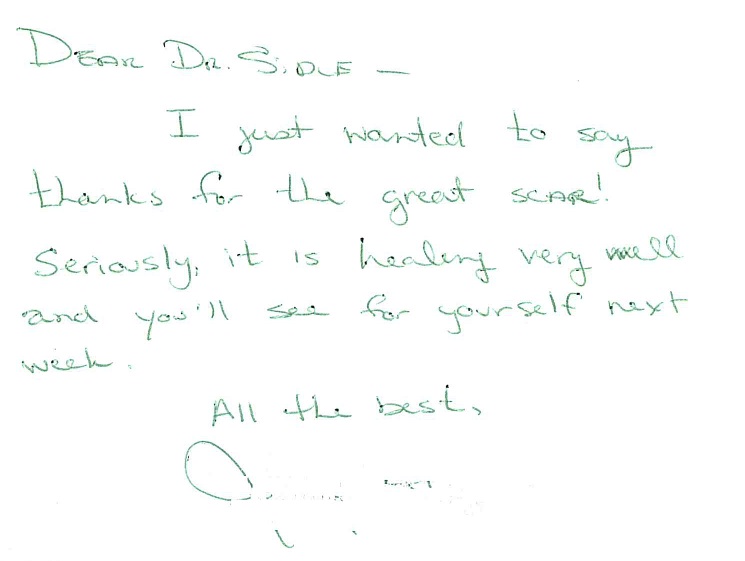 Dear Dr. Sidle —
I just wanted to say
thanks for the great scar!
Seriously, it is healing very well
and you'll see for yourself next
week.
All the best,